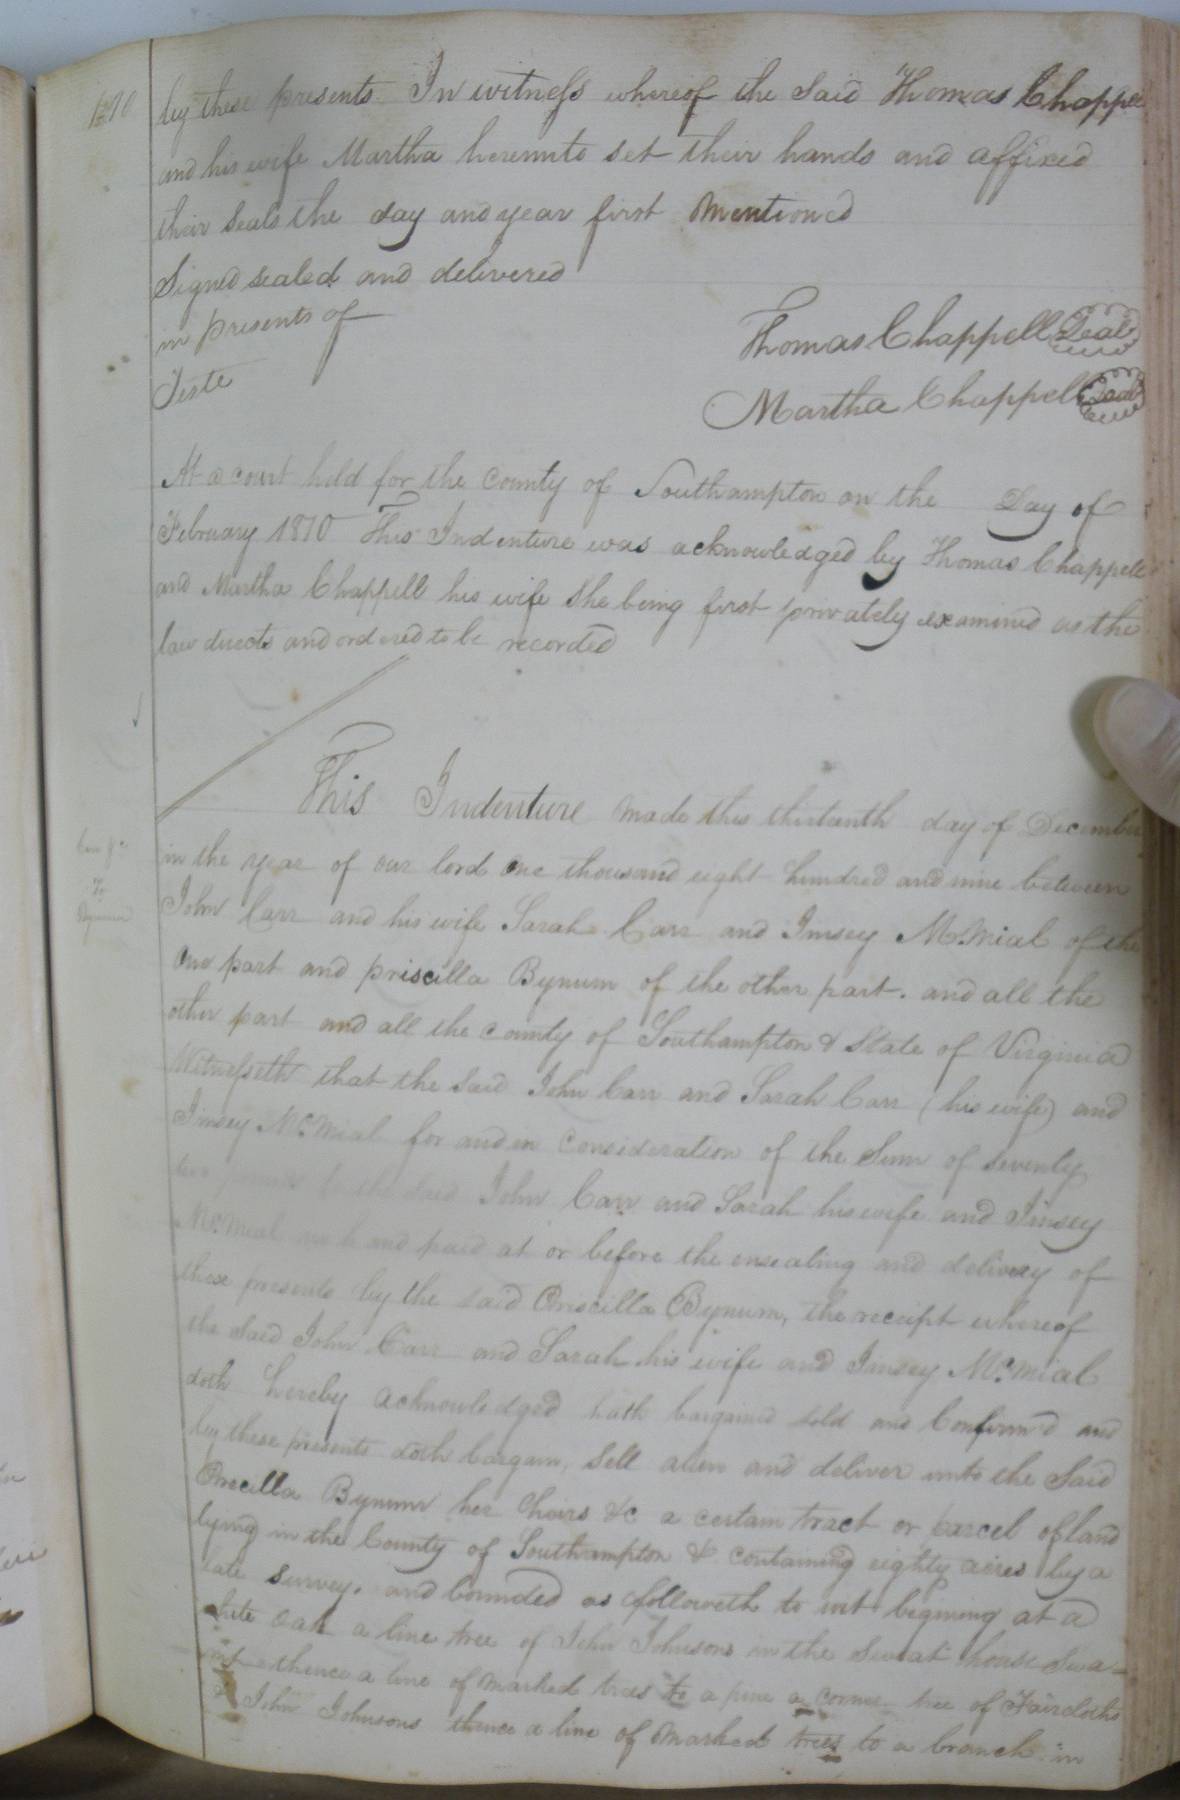 by these presents In witness whereof the said Thomas Chappell
and his wife Martha hereunto set their hands and affixed
their seals the day and year first Mentioned
Signed sealed and delivered
in presents of
Teste
Thomas Chappell Seal
Martha Chappell Seal
At a court held for the County of Southampton on the Day of
February 1810 This Indenture was acknowledged by Thomas Chappell
and Martha Chappell his wife She being first privately examined as the
law directs and ordered to be recorded
This Indenture made this thirteenth day of December
in the year of our lord One thousand eight hundred and nine between
To
Bynum
John Carr and his wife Sarah Carr and Jinsey McMial of the
One part and priscilla Bynum of the other part. and all the
other part and all the county of Southampton & State of Virginia
Witnesseth that the said John Carr and Sarah Carr (his wife) and
Jinsey McMial for and in Consideration of the Sum of seventy
two to the said John Carr and Sarah his wife and Jinsey
McMial in hand paid at or before the ensealing and delivery of
these presents by the said Priscilla Bynum, the receipt whereof
the Said John Carr and Sarah his wife and Jinsey McMial
doth hereby acknowledged hath bargained sold and Confirm'd and
by these presents doth bargain, Sell alien and deliver unto the Said
Precilla Bynum her heirs &c a certain tract or parcel of land
lying in the County of Southampton & containing eighty acres by a
late survey. and bounded as followeth to wit begining at a
white Oak a line tree of John Johnsons in the Sweat house Swa-
mp thence a line of marked trees to a pine a corner tree of Faircloths
& John Johnsons thence a line of Marked trees to a branch in